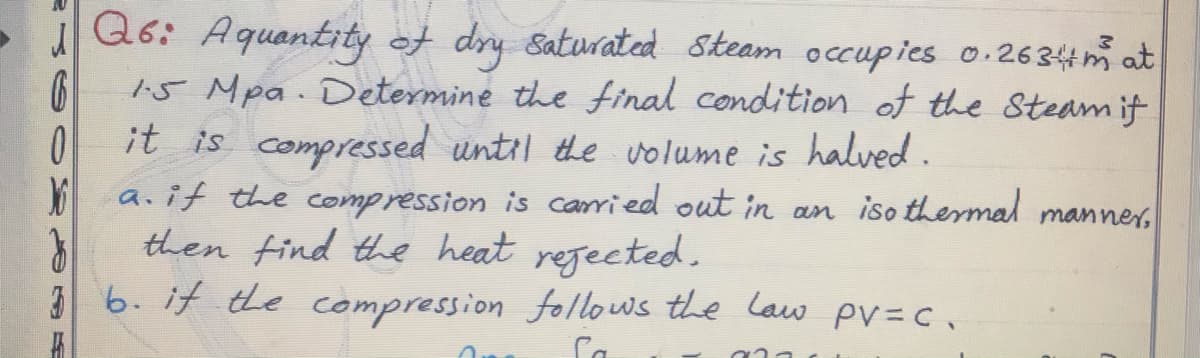 Q6: A quantity of dry saturated steam occupies 0.2634 m³ at
1.5 Mpa. Determine the final condition of the steam if
it is compressed until the volume is halved.
a. if the compression is carried out in an isothermal manner,
then find the heat rejected.
b. if the compression follows the law pv = c.